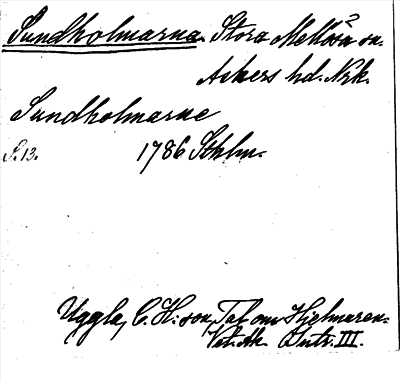 Sundholmarna. Stora Mellösa sn.
Askers hd. Nrk.
Sundholmarne
S. 13. 1786 Sthlm.
Uggla, C. H:son, Tal om Hjelmaren.
Vet. Ak. Intr. III.